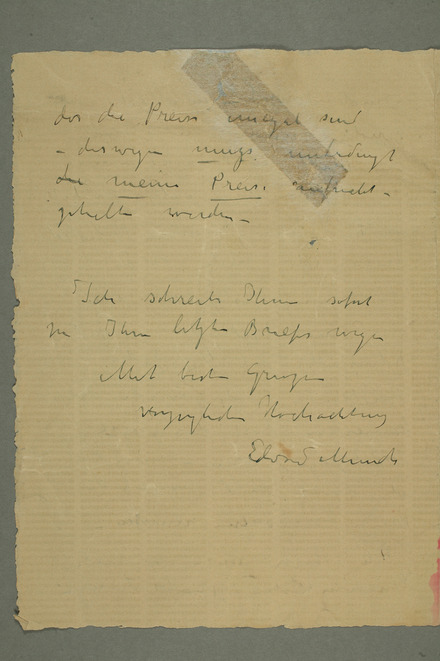 das die Preise unegal sind
– deswegen mugs unbedingt
die meine Preise aufrecht-
gehalten werden –
Ich schreibe Ihnen sofort
Ihren letzten Briefes wegen
Mit besten Grüzen
vorzuglichen Hochachtung
Edvard Munch